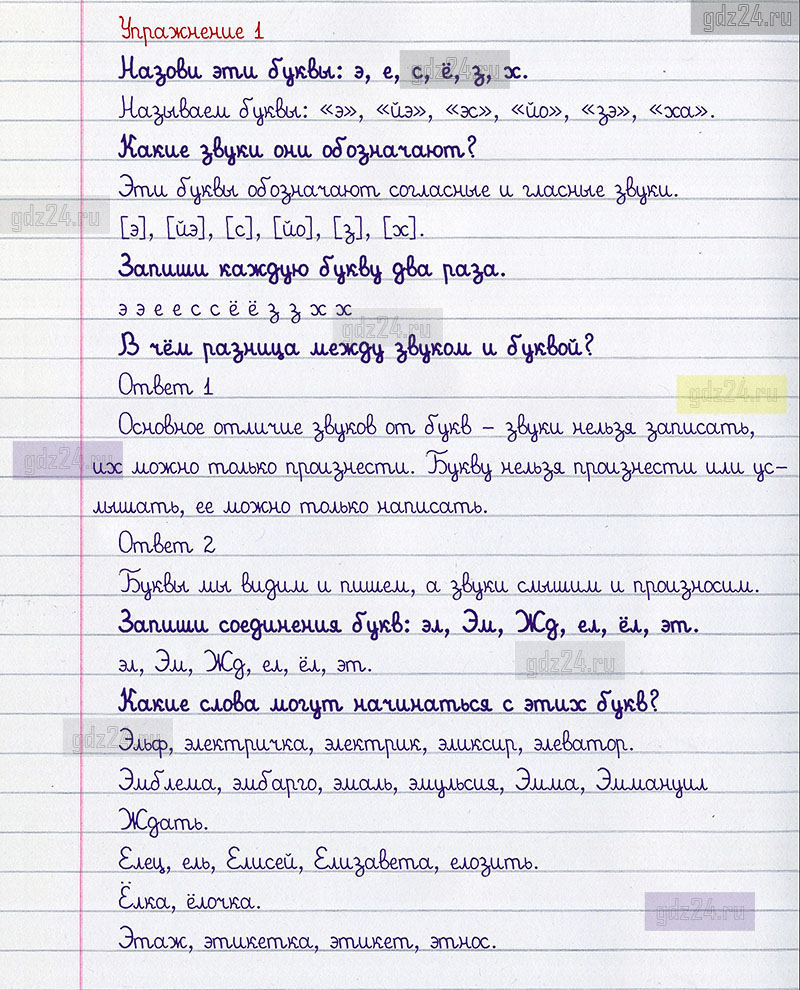 gdz24.ru
Упражнение 1
Назови эти буквы: э, е, с, ё, з, х.
gdz24.ru
Называем буквы: «э», «йэ», «эс», «йо», «зэ», «ха».
Какие звуки они обозначают?
Эти буквы обозначают согласные и гласные звуки.
gdz24.ru
[э], [йэ], [с], [йо], [з], [х].
Запиши каждую букву два раза.
э э е е с с ё ё з з х х
gdz24.ru
В чём разница между звуком и буквой?
Ответ 1
gdz24.ru
Основное отличие звуков от букв – звуки нельзя записать,
gdz24.ru
их можно только произнести. Букву нельзя произнести или ус-
лышать, ее можно только написать.
Ответ 2
Буквы мы видим и пишем, а звуки слышим и произносим.
Запиши соединения букв: эл, Эм, Жд, ел, ёл, эт.
эл, Эм, Жд, ел, ёл, эт.
gdz24.ru
Какие слова могут начинаться с этих букв?
gdz24.ru
Эльф, электричка, электрик, эликсир, элеватор.
Эмблема, эмбарго, эмаль, эмульсия, Эмма, Эммануил
Ждать.
Елец, ель, Елисей, Елизавета, елозить.
Ёлка, ёлочка.
gdz24.ru
Этаж, этикетка, этикет, этнос.